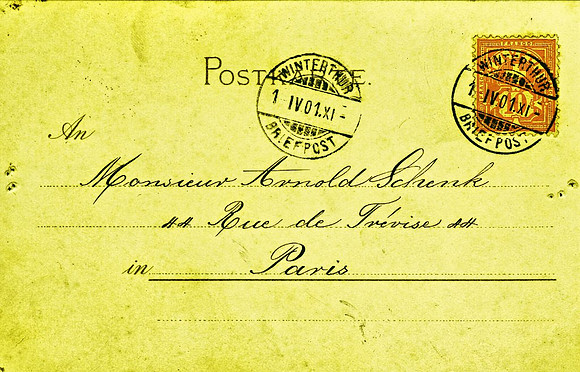 POSTKARTE.
WINTERTHUR
1-IV 01.XI-
BRIEFPOST
FRANCO
WINTERTHUR
1-IV 01.XI-
BRIEFPOST
An
Monsieur Arnold Schenk
44 Rue de Trévise 44
in Paris